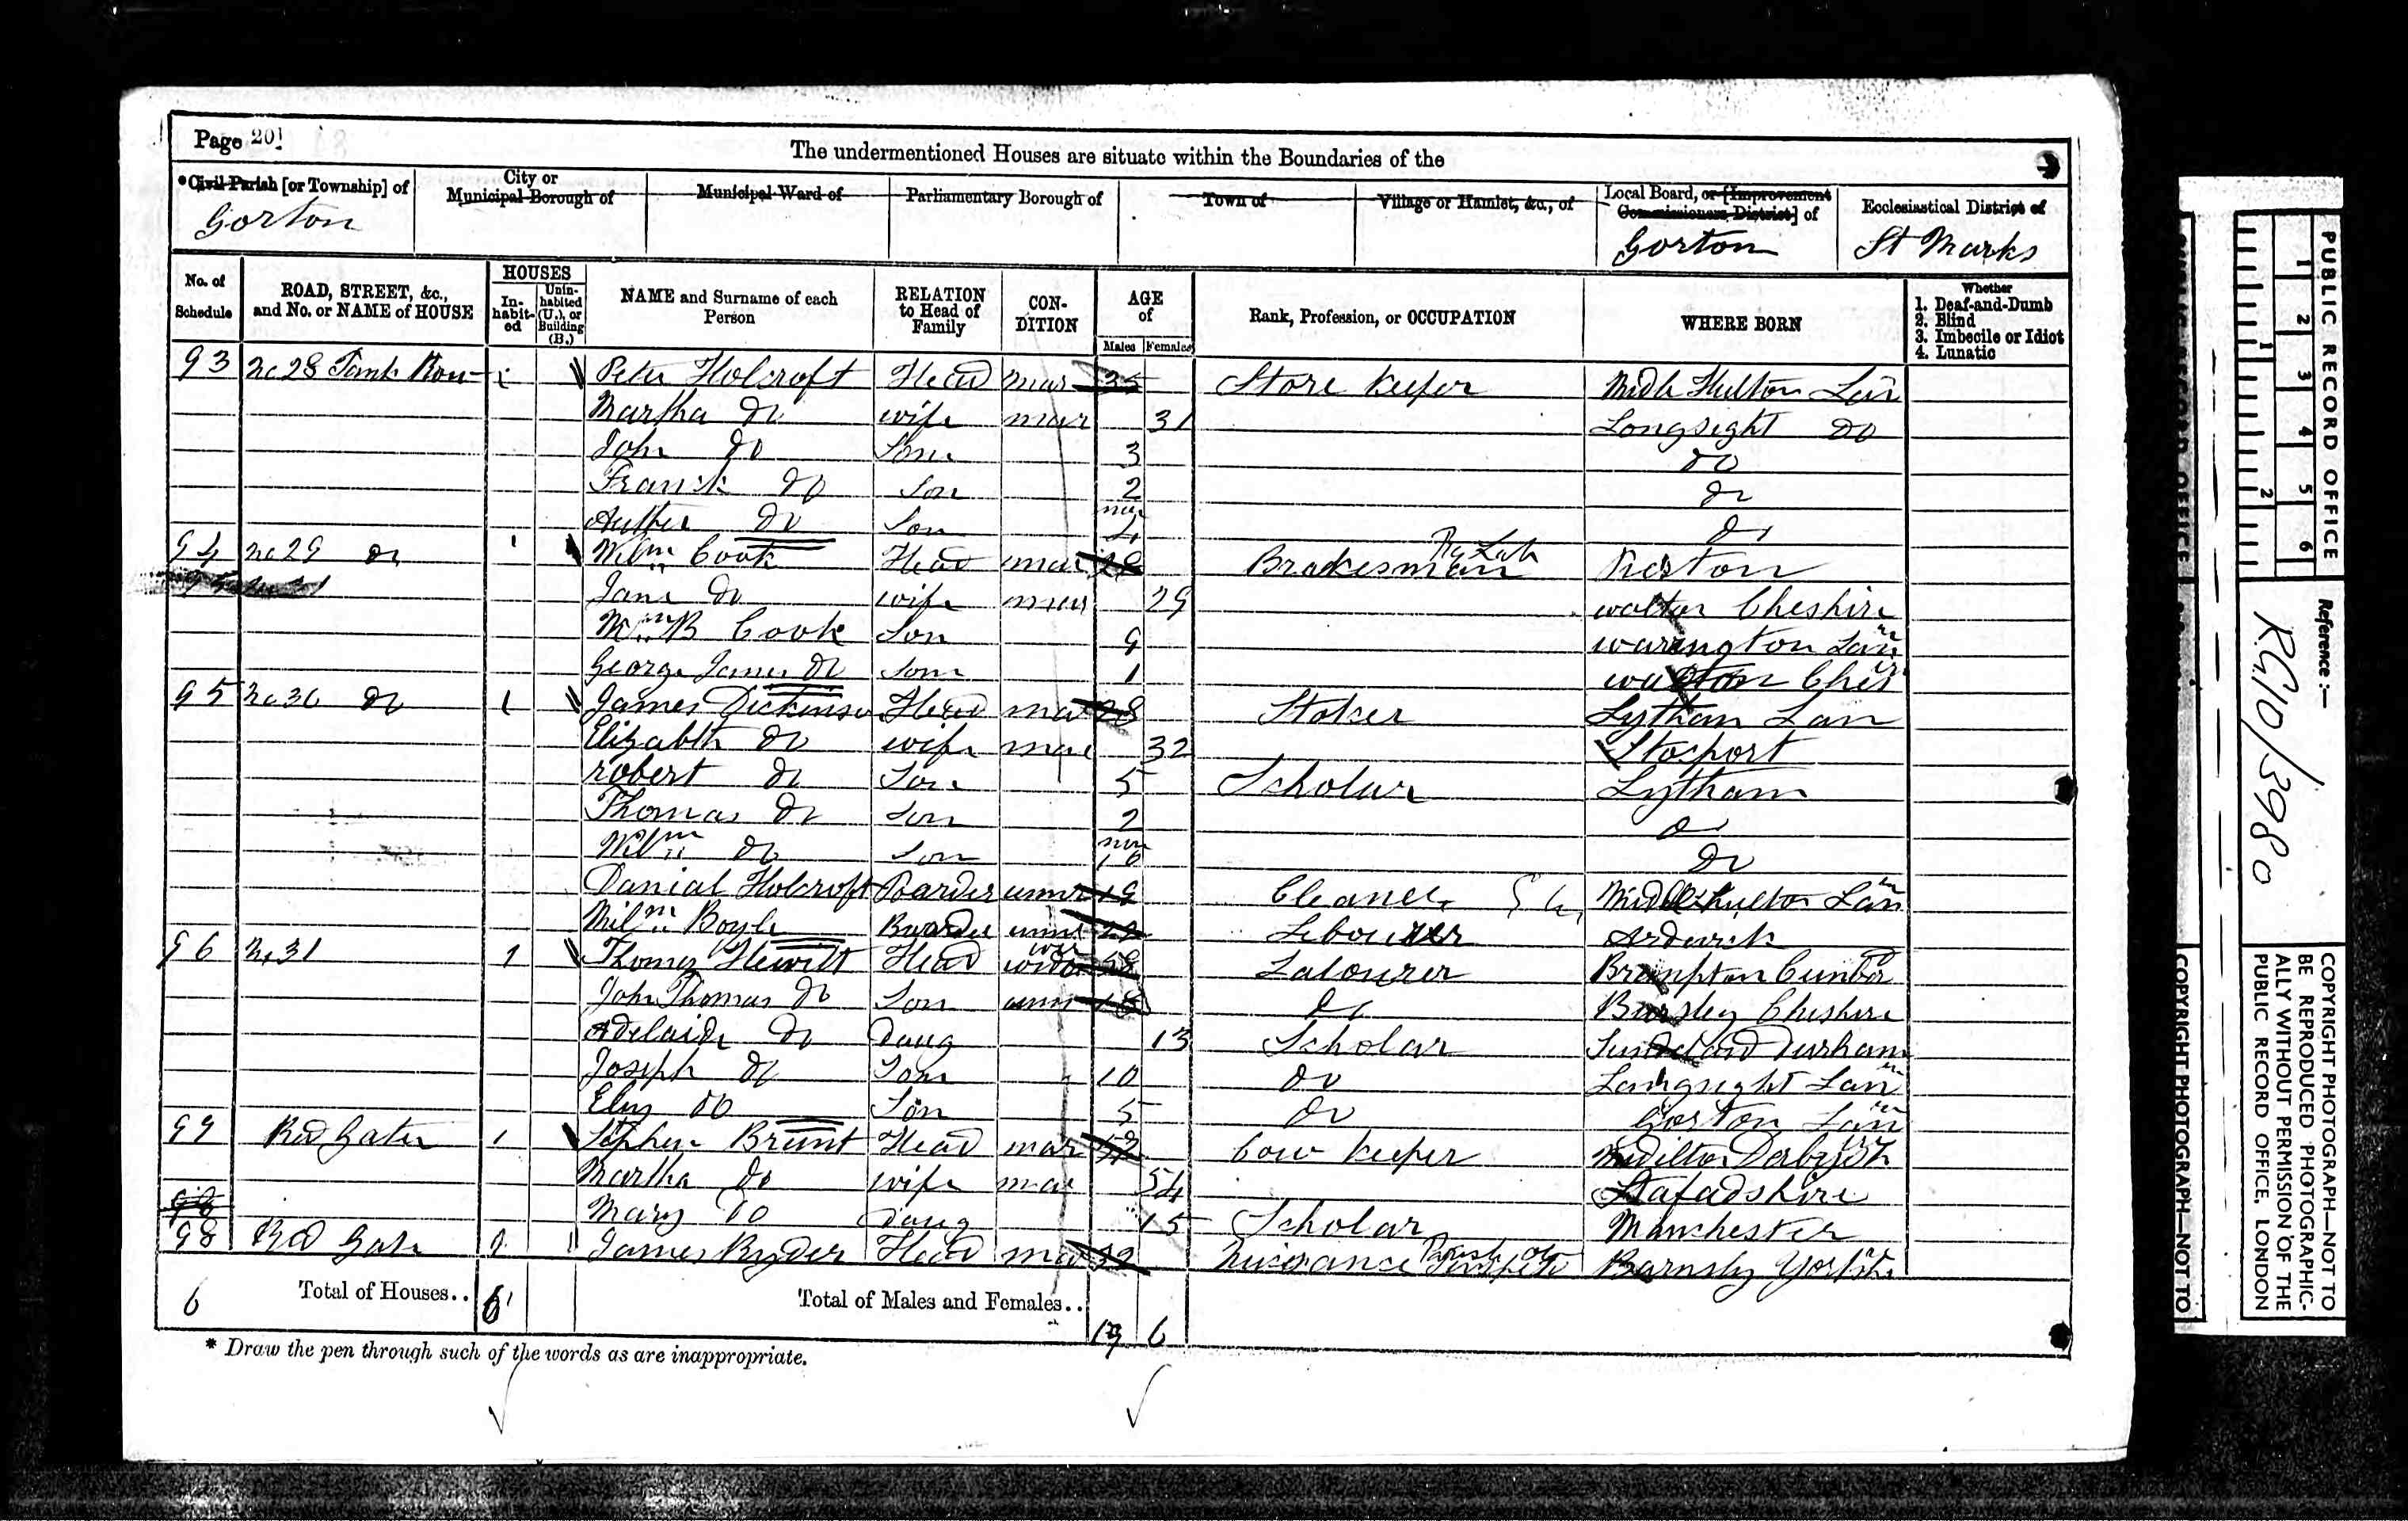 Page 20
The undermentioned Houses are situate within the Boundaries of the
*Civil Parish [or Township] of
Gorton
City or Municipal Borough of
Municipal Ward of
Parliamentary Borough of
Town of
Village or Hamlet, &c., of
Local Board, or [Improvement Commissioners District] of
Gorton
Ecclesiastical District of
St Marks
No. of Schedule
ROAD, STREET, &c., and No. or NAME of HOUSE
HOUSES
In-habit-ed
Unin-habited (U.), or Building (B.)
NAME and Surname of each Person
RELATION to Head of Family
CON-DITION
AGE of
Males
Females
Rank, Profession, or OCCUPATION
WHERE BORN
Whether
1. Deaf-and-Dumb
2. Blind
3. Imbecile or Idiot
4. Lunatic
93 No 28 Tank Row 1 Peter Holcroft Head mar 35 Store Keeper Midle Hulton Lan
Martha Do wife mar 31 Longsight Do
John Do Son 3 Do
Frank Do Son 2 Do
Do Son 4 Do
94 No 29 Do 1 Wilm Cook Head mar Brakesman Preston
Jane Do wife mar 29 walton Cheshire
Wm B Cook Son 9 warington Lan
George James Do Son 1 walton Ches
95 No 30 Do 1 James Dickinson Head mar 28 Stoker Lytham Lan
Elizabth Do wife mar 32 Stocport
robert Do Son 5 Scholar Lytham
Thomas Do Son 2 Do
Wilm Do Son 10 Do
Danial Holcroft Barder unmr 19 Cleaner Middle hulton Lan
Wilm Boyle Boarder unmr Labourer Arderick
96 No 31 1 Thomas Hewitt Head Labourer Brampton Cumber
John Thomas Do Son unmr 18 Do Cheshire
Adelaide Do Daug 13 Scholar Sunderland Durham
Joseph Do Son 10 Do Longsight Lan
Do Son 5 Do Gorton Lan
99 Red Gates 1 Stephen Brunt Head mar Cow Keeper Derbysh
Martha Do wife mar 54 Stafadshire
Mary Do Daug 15 Scholar Manchester
98
98 Red Gate 1 James Ryder Head mar Nuisance Inspector Barnsly Yorksh
6 Total of Houses.. 6
Total of Males and Females.. 19 6
* Draw the pen through such of the words as are inappropriate.
PUBLIC RECORD OFFICE
1 2 3 4 5 6
1 2
Reference:—
R.G.10/3980
COPYRIGHT PHOTOGRAPH—NOT TO BE REPRODUCED PHOTOGRAPHIC-ALLY WITHOUT PERMISSION OF THE PUBLIC RECORD OFFICE, LONDON
COPYRIGHT PHOTOGRAPH—NOT TO